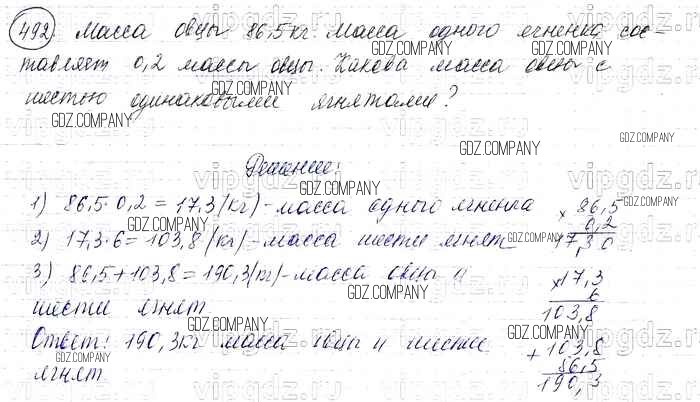 492 Масса овцы 86,5 кг. Масса одного ягненка сос-
тавляет 0,2 массы овцы. Какова масса овцы с
шестью одинаковыми ягнятами?
Решение:
1) 86,5 · 0,2 = 17,3 (кг) - масса одного ягненка
2) 17,3 · 6 = 103,8 (кг) - масса шести ягнят
3) 86,5 + 103,8 = 190,3 (кг) - масса овцы и
шести ягнят
Ответ: 190,3 кг масса овцы и шести
ягнят
× 86,5
0,2
17,30
× 17,3
6
103,8
+ 103,8
86,5
190,3
GDZ.COMPANY
vipgdz.ru